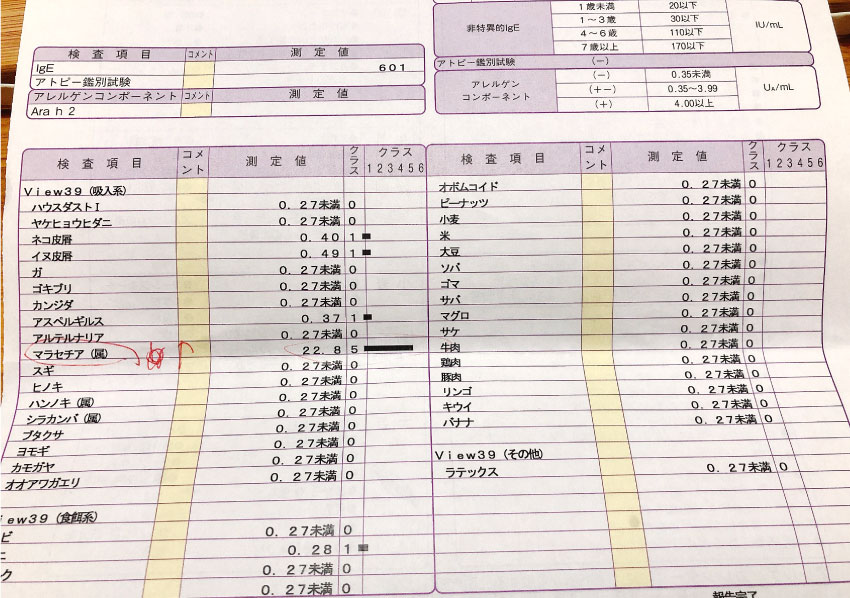 非特異的IgE
1歳未満 20以下
1~3歳 30以下
4~6歳 110以下
7歳以上 170以下
IU/mL
アトピー鑑別試験 (−)
アレルゲン
コンポーネント
(−) 0.35未満
(+−) 0.35~3.99
(+) 4.00以上
UA/mL
検査項目 コメント 測定値
IgE 601
アトピー鑑別試験
アレルゲンコンポーネント コメント 測定値
Ara h 2
検査項目 コメント 測定値 クラス クラス
1 2 3 4 5 6
View39(吸入系)
ハウスダストⅠ 0.27未満 0
ヤケヒョウヒダニ 0.27未満 0
ネコ皮屑 0.40 1
イヌ皮屑 0.49 1
ガ 0.27未満 0
ゴキブリ 0.27未満 0
カンジダ 0.27未満 0
アスペルギルス 0.37 1
アルテルナリア 0.27未満 0
マラセチア(属) 22.8 5
スギ 0.27未満 0
ヒノキ 0.27未満 0
ハンノキ(属) 0.27未満 0
シラカンバ(属) 0.27未満 0
ブタクサ 0.27未満 0
ヨモギ 0.27未満 0
カモガヤ 0.27未満 0
オオアワガエリ 0.27未満 0
iew39(食餌系)
ビ 0.27未満 0
ニ 0.28 1
ク 0.27未満 0
0.27未満 0
検査項目 コメント 測定値 クラス クラス
1 2 3 4 5 6
オボムコイド 0.27未満 0
ピーナッツ 0.27未満 0
小麦 0.27未満 0
米 0.27未満 0
大豆 0.27未満 0
ソバ 0.27未満 0
ゴマ 0.27未満 0
サバ 0.27未満 0
マグロ 0.27未満 0
サケ 0.27未満 0
牛肉 0.27未満 0
鶏肉 0.27未満 0
豚肉 0.27未満 0
リンゴ 0.27未満 0
キウイ 0.27未満 0
バナナ 0.27未満 0
View39(その他)
ラテックス 0.27未満 0
報告完了